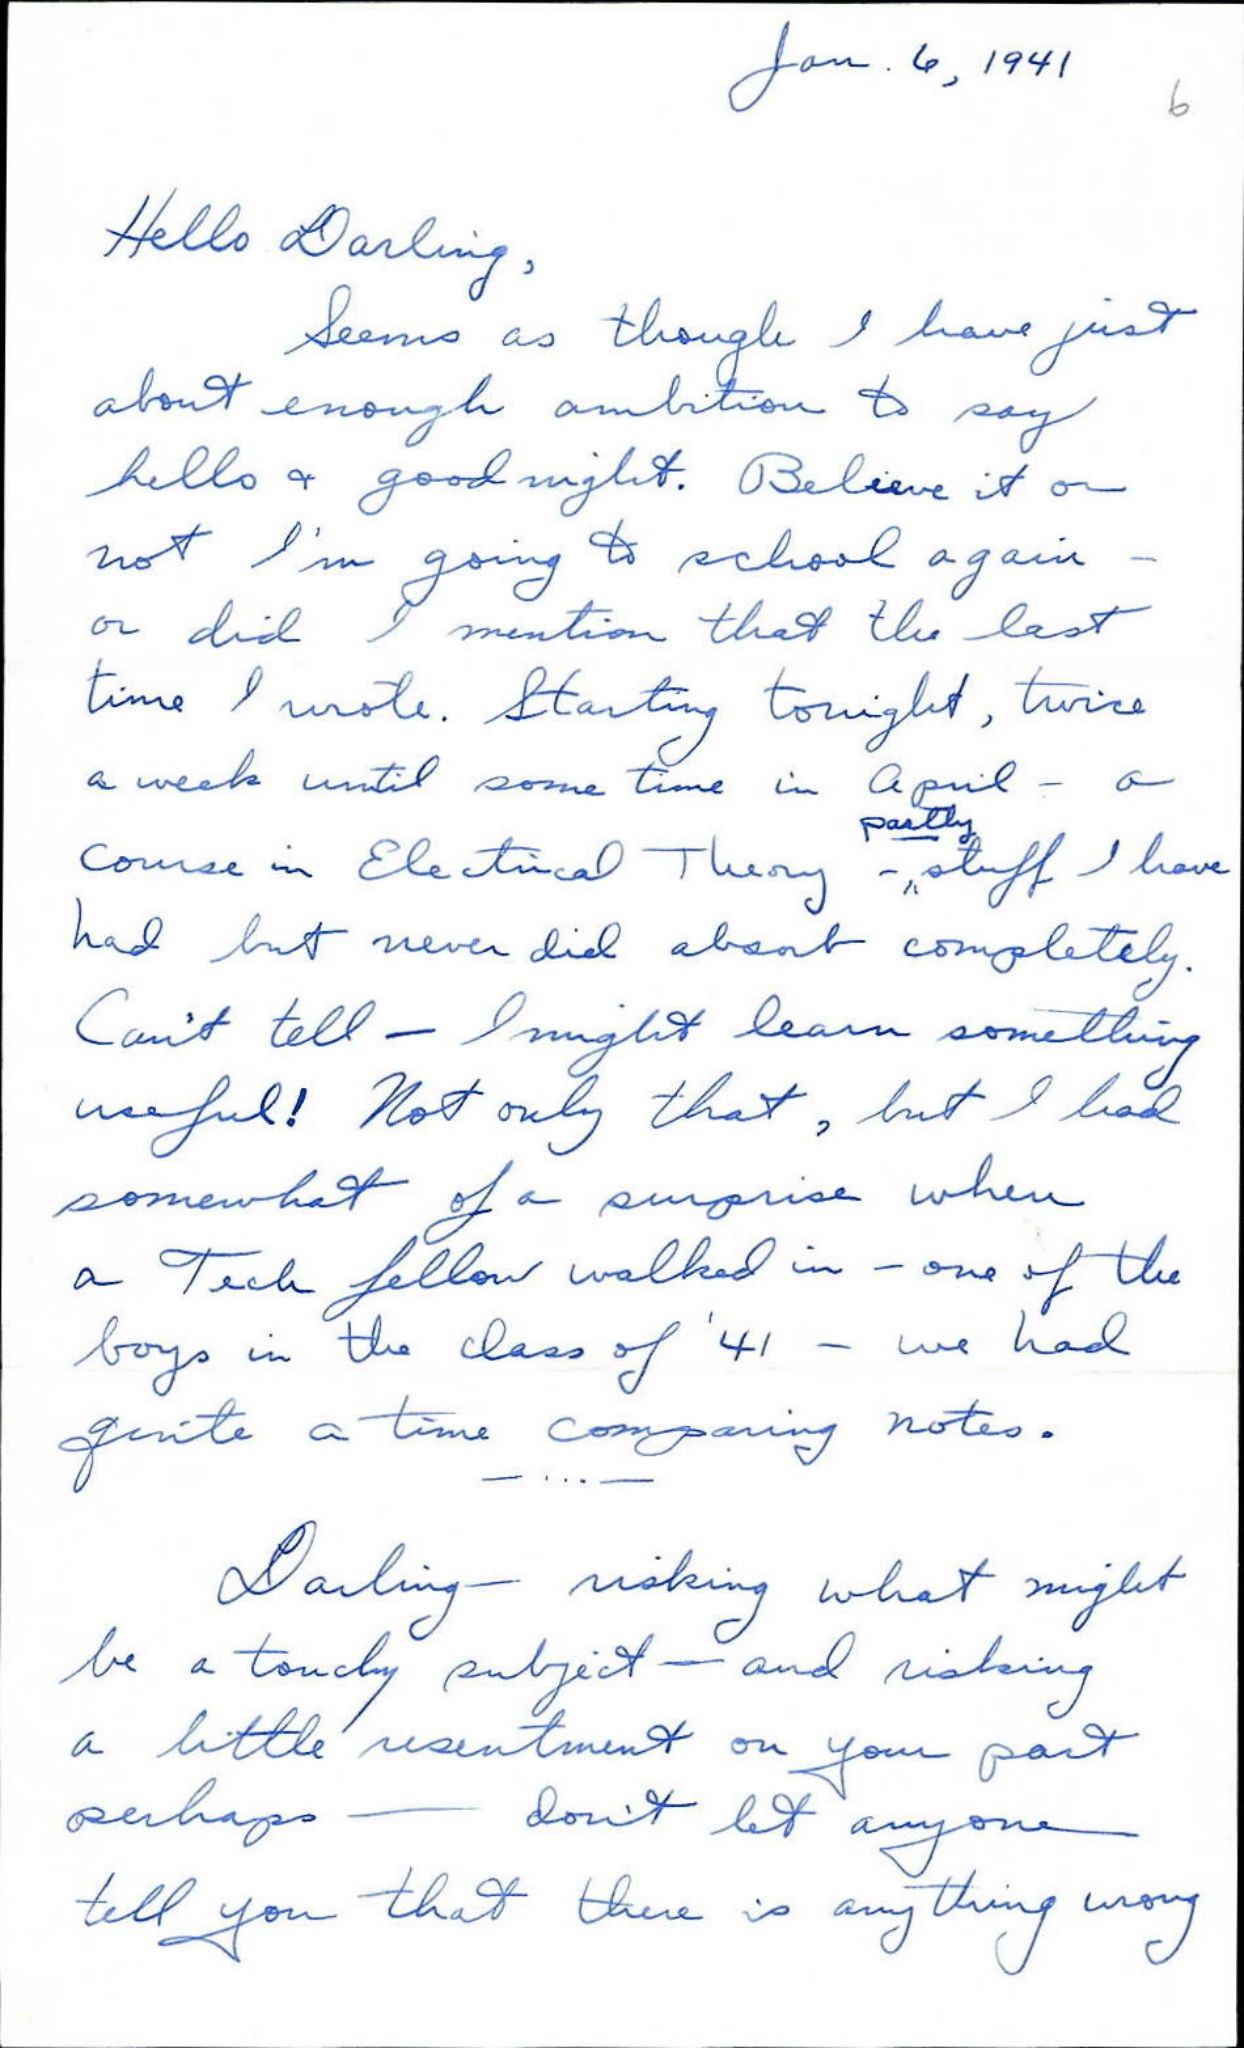 Jan. 6, 1941
6
Hello Darling,
Seems as though I have just
about enough ambition to say
hello & goodnight. Believe it or
not I'm going to school again -
or did I mention that the last
time I wrote. Starting tonight, twice
a week until some time in April - a
partly
course in Electrical Theory - stuff I have
had but never did absorb completely.
Can't tell — I might learn something
useful! Not only that, but I had
somewhat of a surprise when
a Tech fellow walked in - one of the
boys in the class of '41 - we had
quite a time comparing notes.
— ... —
Darling — risking what might
be a touchy subject — and risking
a little resentment on your part
perhaps — don't let anyone
tell you that there is anything wrong